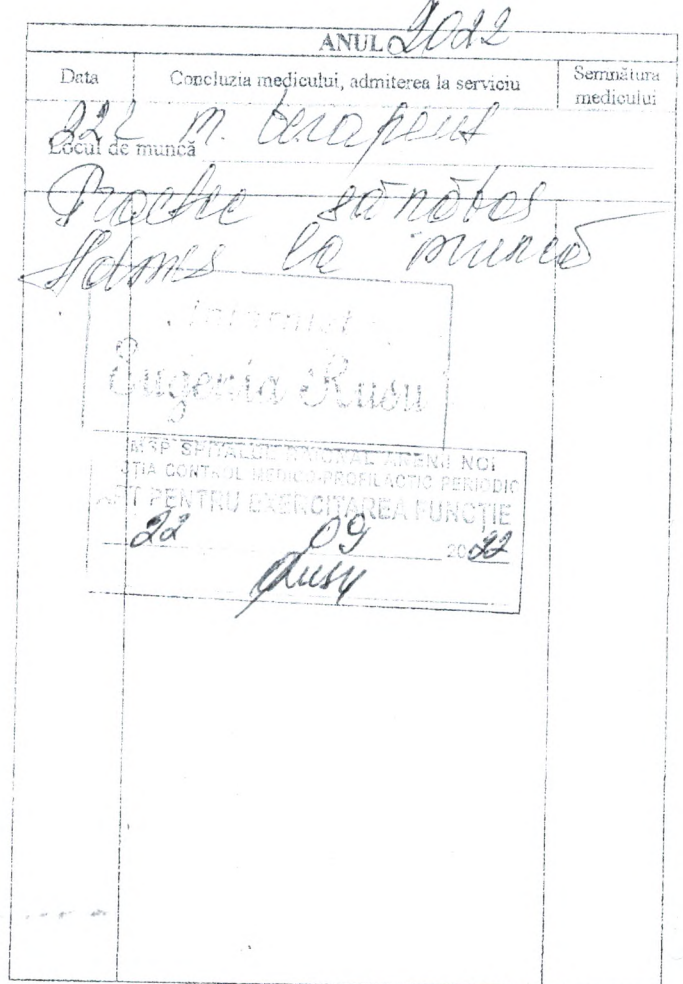 ANUL 2022
Data Concluzia medicului, admiterea la serviciu Semnătura medicului
m. terapeut
Locul de muncă
Practic sănătos
Admis la muncă
Internist
Eugenia Rusu
MSP SPITALUL RAIONAL ANENII NOI
ȚIA CONTROL MEDICO-PROFILACTIC PERIODIC
APT PENTRU EXERCITAREA FUNCȚIE
22 09 2022
Rusu